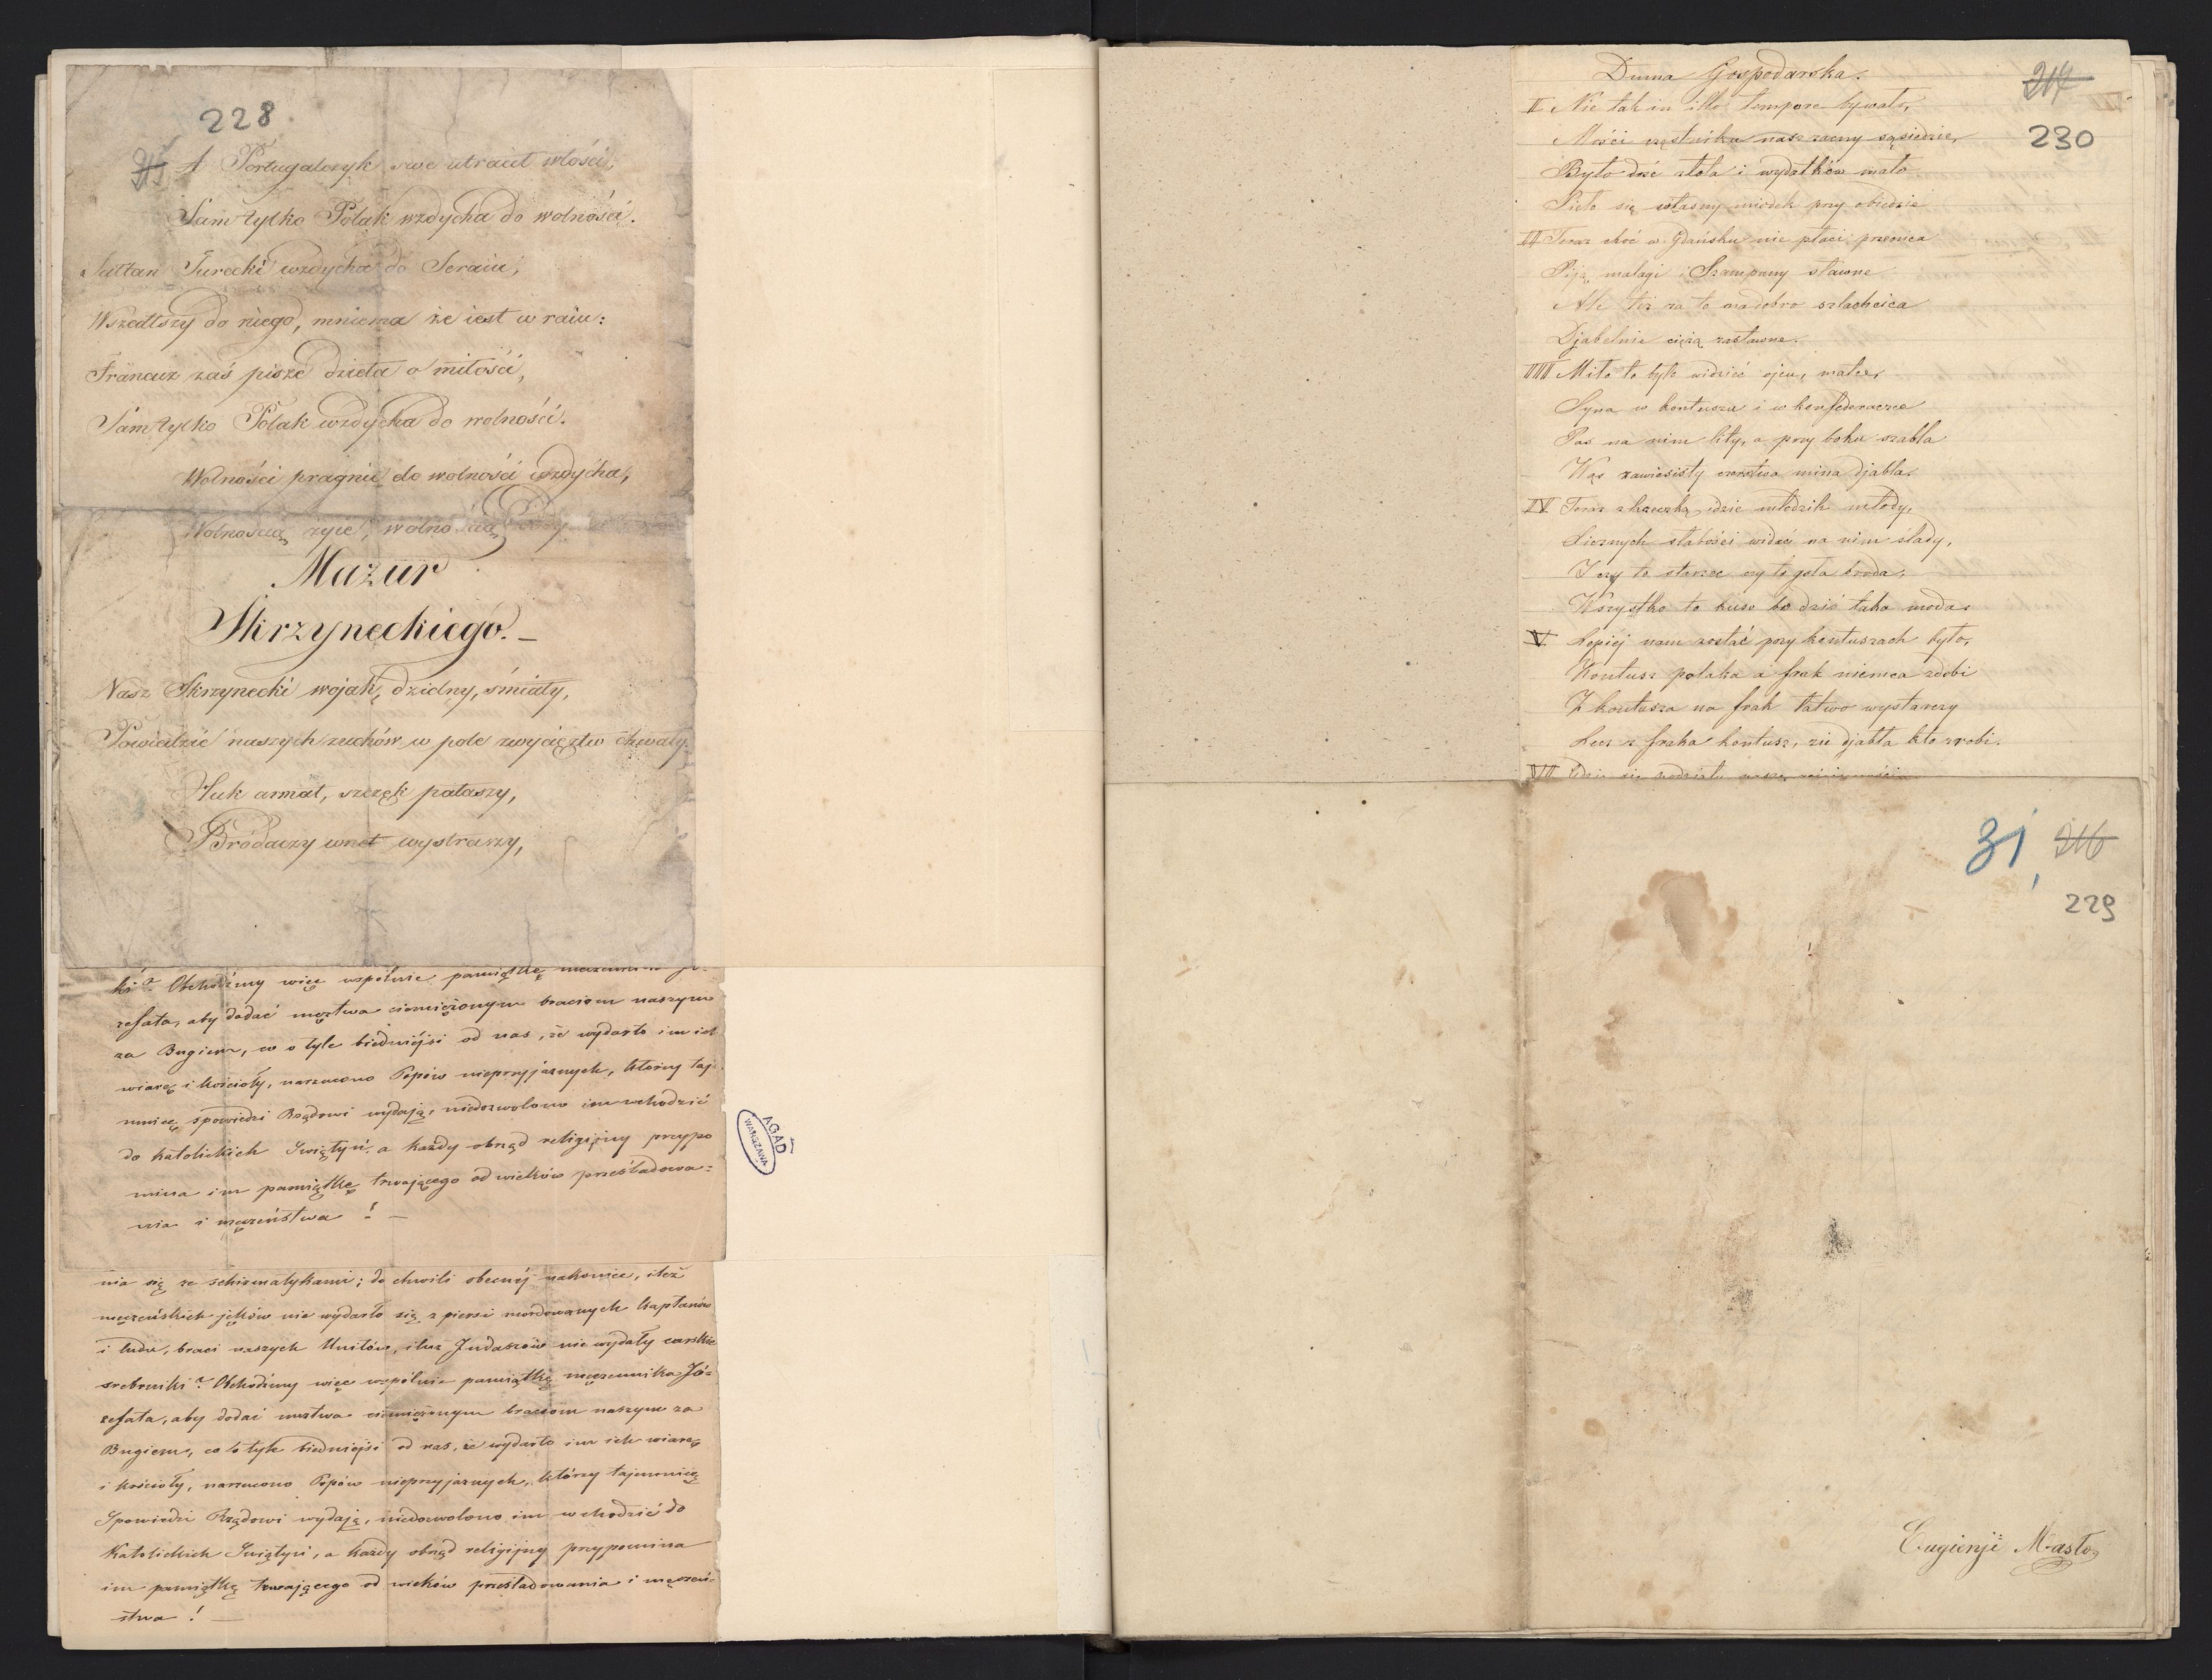 228.
215
A Portugalczyk swe utracił włości,
Sam tylko Polak wzdycha do wolności.
Sułtan Turecki wzdycha do Seraiu,
Wszedłszy do niego, mniema że iest w raiu:
Francuz zaś pisze dzieła o miłości,
Sam tylko Polak wzdycha do wolności.
Wolności pragnie do wolności wzdycha,
Wolnością żyie, wolnością
Mazur
Skrzyneckiego. –
Nasz Skrzynecki wojak, dzielny, śmiały,
Powiedzie naszych zuchów w pole zwycięztw chwały.
Huk armat, szczęk pałaszy,
Brodaczy wnet wystraszy,
ki? Obchodźmy więc wspólnie pamiątkę
zefata, aby dodać męztwa ciemiężonym braciom naszym
za Bugiem, co o tyle biedniejsi od nas, że wydarto im ich
wiarę i kościoły, narzucono Popów nieprzyjaznych, którzy taje
mnicę spowiedzi Rządowi wydają, niedozwolono im wchodzić
do katolickich Świątyń, a każdy obrząd religijny przypo
mina im pamiątkę trwającego od wieków prześladowa=
nia i męczeństwa! –
nia się ze schizmatykami; do chwili obecnéj nakoniec, ileż
męczeńskich jęków nie wydarło się z piersi mordowanych kapłanów
i ludu, braci naszych Unitów, iluż Judaszów nie wydały carskie
srebrniki? Obchodźmy więc wspólnie pamiątkę męczennika Jó=
zefata, aby dodać męztwa ciemiężonym braciom naszym za
Bugiem, co o tyle biedniejsi od nas, że wydarto im ich wiarę
i kościoły, narzucono Popów nieprzyjaznych, którzy tajemnicę
Spowiedzi Rządowi wydają, niedozwolono im wchodzić do
Katolickich Świątyń, a każdy obrząd religijny przypomina
im pamiątkę trwającego od wieków prześladowania i męczeń-
stwa! –
AGAD
WARSZAWA
Duma Gospodarska.
217
230
II Nie tak in illo tempore bywało,
Mości cześniku nasz zacny sąsiedzie,
Było dość złota i wydatków mało
Piło się własny miodek przy obiedzie
III Teraz choć w Gdańsku nie płaci pszenica
Piją malagi i Szampany sławne
Ale też za to na dobro szlachcica
Djabelnie ciężą zastawne.
IIII Miło to było widzieć ojcu, matce,
Syna w kontuszu i w konfederatce
Pas na nim lity, a przy boku szabla
Wąs zawiesisty czerstwa mina djabla.
IV Teraz z laseczką idzie młodzik młody,
Licznych słabości widać na nim ślady,
I czy to starzec czy to goła broda,
Wszystko to kuso bo dziś taka moda.
V Lepiej nam zostać przy kontuszach było,
Kontusz polaka a frak niemca zdobi
Z kontusza na frak łatwo wystarczy
Lecz z fraka kontusz, zii djabła kto zrobi.
VII Gdzie się podziała nasza
31, 216
229
Eugienji Masło